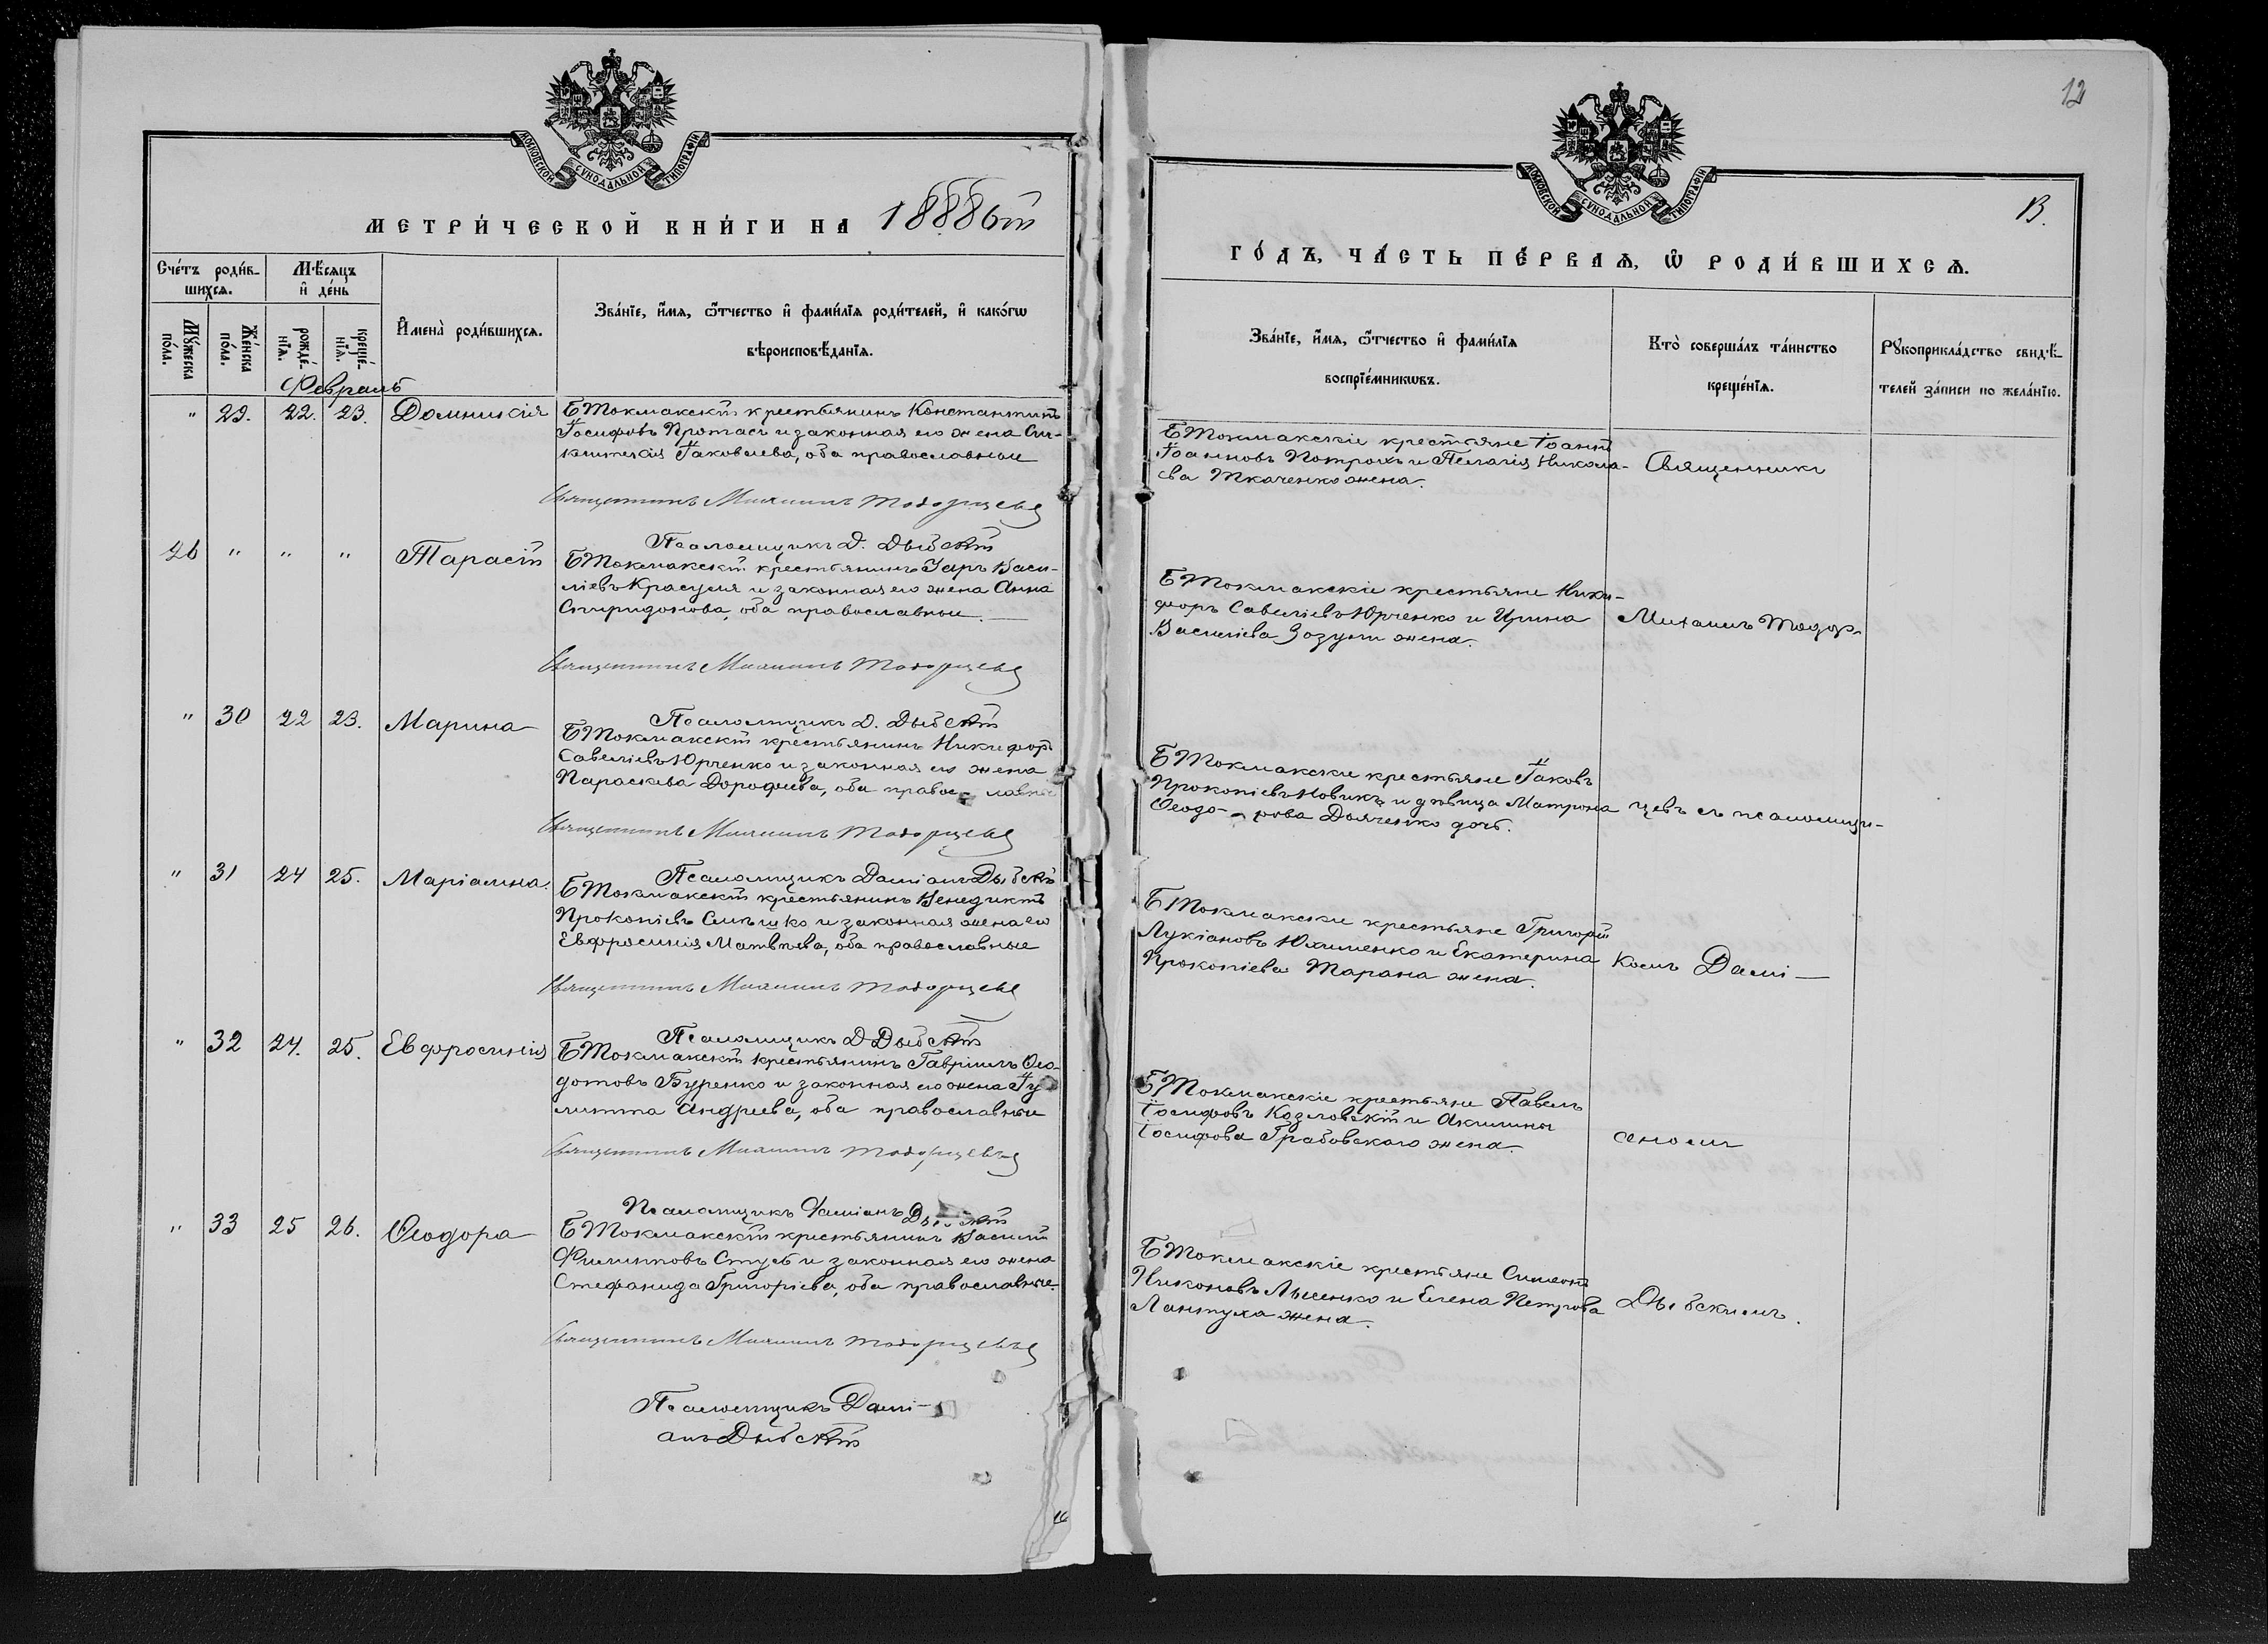 МОСКОВСКОЙ СѴНОДАЛЬНОЙ ТИПОГРАФІИ
МЕТРИ́ЧЕСКОЙ КНИ́ГИ НА 1888й
Сче́тъ роди́в-
шихся.
Мѣ́сяцъ
и҆ де́нь
Мꙋ́жеска
по́ла.
Же́нска
по́ла.
рожде́-
нїѧ.
креще́-
нїѧ.
И҆мена̀ роди́вшихсѧ.
Зва́нїе, и҆́мѧ, ѻ҆́тчество и҆ фами́лїѧ роди́телей, и҆ како́гѡ
вѣроисповѣ́данїѧ.
Февраль
" 29. 22. 23. Домникія
БТокмакскій крестьянинъ Константинъ
Іосифовъ Протасъ и законная его жена Син-
клитикія Іаковлева, оба православные
Священникъ Михаилъ Тодорцевъ
Псаломщикъ Д. Дыбскій
26 " " " Тарасій
БТокмакскій крестьянинъ Уаръ Васи-
ліевъ Красуля и законная его жена Анна
Спиридонова, оба православные.
Священникъ Михаилъ Тодорцевъ
Псаломщикъ Д. Дыбскій
" 30 22 23. Марина
БТокмакскій крестьянинъ Никифоръ
Савеліевъ Юрченко и законная его жена
Параскева Дорофеева, оба православные
Священникъ Михаилъ Тодорцевъ
Псаломщикъ Даміанъ Дыбскій
" 31 24 25. Маріамна.
БТокмакскій крестьянинъ Венедиктъ
Прокопіевъ Симъшко и законная жена его
Евфросинія Матвѣева, оба православные
Священникъ Михаилъ Тодорцевъ
Псаломщикъ Д Дыбскій
" 32 24. 25. Евфросинія
БТокмакскій крестьянинъ Гавріилъ Ѳео-
дотовъ Буренко и законная его жена Іу
литта Андреева, оба православные
Священникъ Михаилъ Тодорцевъ
Псаломщикъ Даміанъ Дыбскій
" 33 25 26. Ѳеодора
БТокмакскій крестьянинъ Василій
Филипповъ Стусь и законная его жена
Стефанида Григоріева, оба православные.
Священникъ Михаилъ Тодорцевъ
Псаломщикъ Дамі-
анъ Дыбскій
12
МОСКОВСКОЙ СѴНОДАЛЬНОЙ ТИПОГРАФІИ
В.
ГО́ДЪ, ЧА́СТЬ ПЕ́РВАѦ, Ѡ҆ РОДИ́ВШИХСѦ.
Зва́нїе, и҆́мѧ, ѻ҆́тчество и҆ фами́лїѧ
воспрїе́мникѡвъ.
Кто̀ соверша́лъ та́инство
креще́нїѧ.
Рꙋкоприкла́дство свидѣ́-
телей за́писи по жела́нїю.
БТокмакскіе крестьяне Іоаннъ
Іоанновъ Потрохъ и Пелагія Никола-
ева Ткаченко жена.
Священникъ
БТокмакскіе крестьяне Ники-
форъ Савеліевъ Юрченко и Ирина
Василіева Зозули жена.
Михаилъ Тодор-
БТокмакскіе крестьяне Іаковъ
Прокопіевъ Новикъ и дѣвица Матрона
Ѳеодо- рова Дьяченко дочь.
цевъ съ псаломщи-
БТокмакскіе крестьяне Григорій
Лукіановъ Юхименко и Екатерина
Прокопіева Тарана жена.
комъ Дамі-
БТокмакскіе крестьяне Павелъ
Іосифовъ Козловскій и Акилина
Іосифова Грабовскаго жена.
аномъ
БТокмакскіе крестьяне Симеонъ
Никоновъ Лысенко и Елена Петрова
Лантуха жена.
Дыбскимъ.